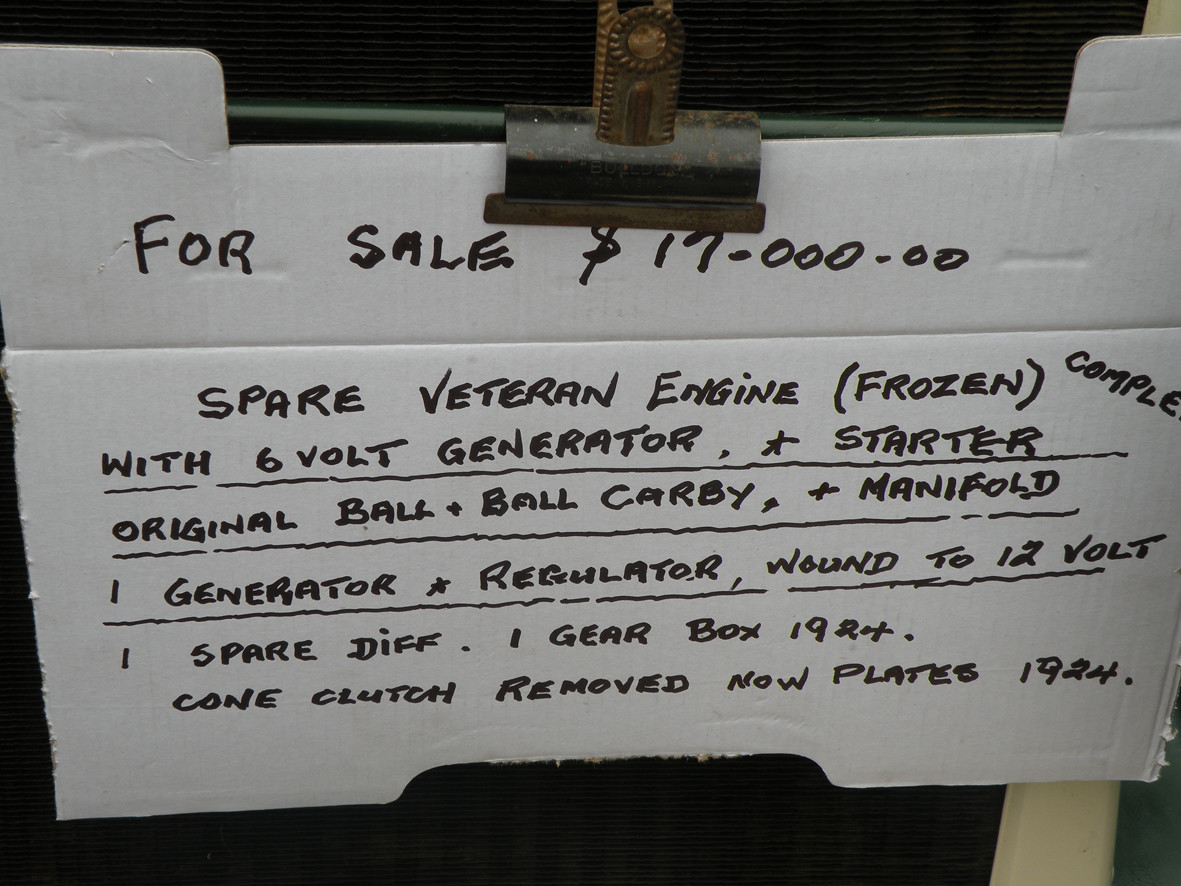 FOR SALE $17-000-00
SPARE VETERAN ENGINE (FROZEN) COMPLE
WITH 6 VOLT GENERATOR, + STARTER
ORIGINAL BALL + BALL CARBY, + MANIFOLD
1 GENERATOR + REGULATOR, WOUND TO 12 VOLT
1 SPARE DIFF. 1 GEAR BOX 1924.
CONE CLUTCH REMOVED NOW PLATES 1924.